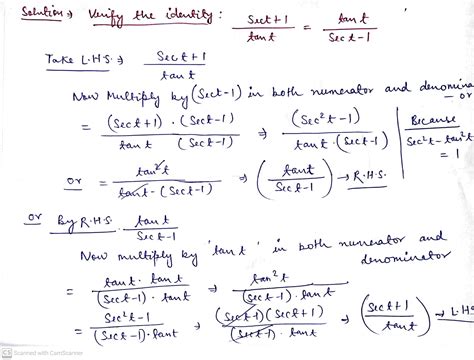 Solution → Verify the identity : (Sect+1)/(tan t) = (tan t)/(Sec t-1)
Take L.H.S. ⇒ (Sec t+1)/(tan t)
Now Multiply by (Sect-1) in both numerator and denomina-
or
= ((Sec t+1) · (Sect-1))/(tan t (Sect-1)) ⇒ ((Sec²t-1))/(tan t·(Sect-1)) | Because Sec²t-tan²t = 1
or = (tan²t)/(tant·(Sect-1)) ⇒ ((tant)/(Sect-1)) → R.H.S.
or By R.H.S. (tan t)/(Sect-1)
Now multiply by 'tant' in both numerator and
denominator
= (tan t · tan t)/((Sect-1) · tant) ⇒ (tan²t)/((Sect-1)· tant)
= (Sec²t-1)/((Sect-1)·tant) ⇒ ((Sect-1)(Sect+1))/((Sect-1)· tant) ⇒ ((Sect+1)/(tant)) → L.HS
CS Scanned with CamScanner